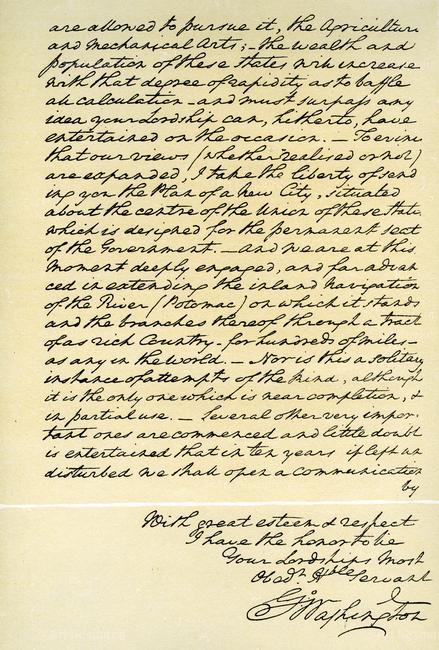 are allowed to pursue it, the Agriculture
and Mechanical Arts; – the wealth and
population of these States will increase
with that degree of rapidity as to baffle
all calculation – and must surpass any
idea your Lordship can, hitherto, have
entertained on the occasion. – To evince
that our views (whether realised or not)
are expanded, I take the liberty of send
ing you the Plan of a New City, situated
about the centre of the Union of these States,
which is designed for the permanent seat
of the Government. – And we are at this
moment deeply engaged, and far advan
ced in extending the inland Navigation
of the River (Potomac) on which it stands
and the branches thereof through a tract
of as rich Country – for hundreds of miles –
as any in the world. – Nor is this a solitary
instance of attempts of the kind, although
it is the only one which is near completion, &
in partial use. – Several other very impor-
tant ones are commenced and little doubt
is entertained that in ten years if left un
disturbed we shall open a communication
by
With great esteem & respect
I have the honor to be
Your Lordships Most
Obedt Hble Servant
Go Washington